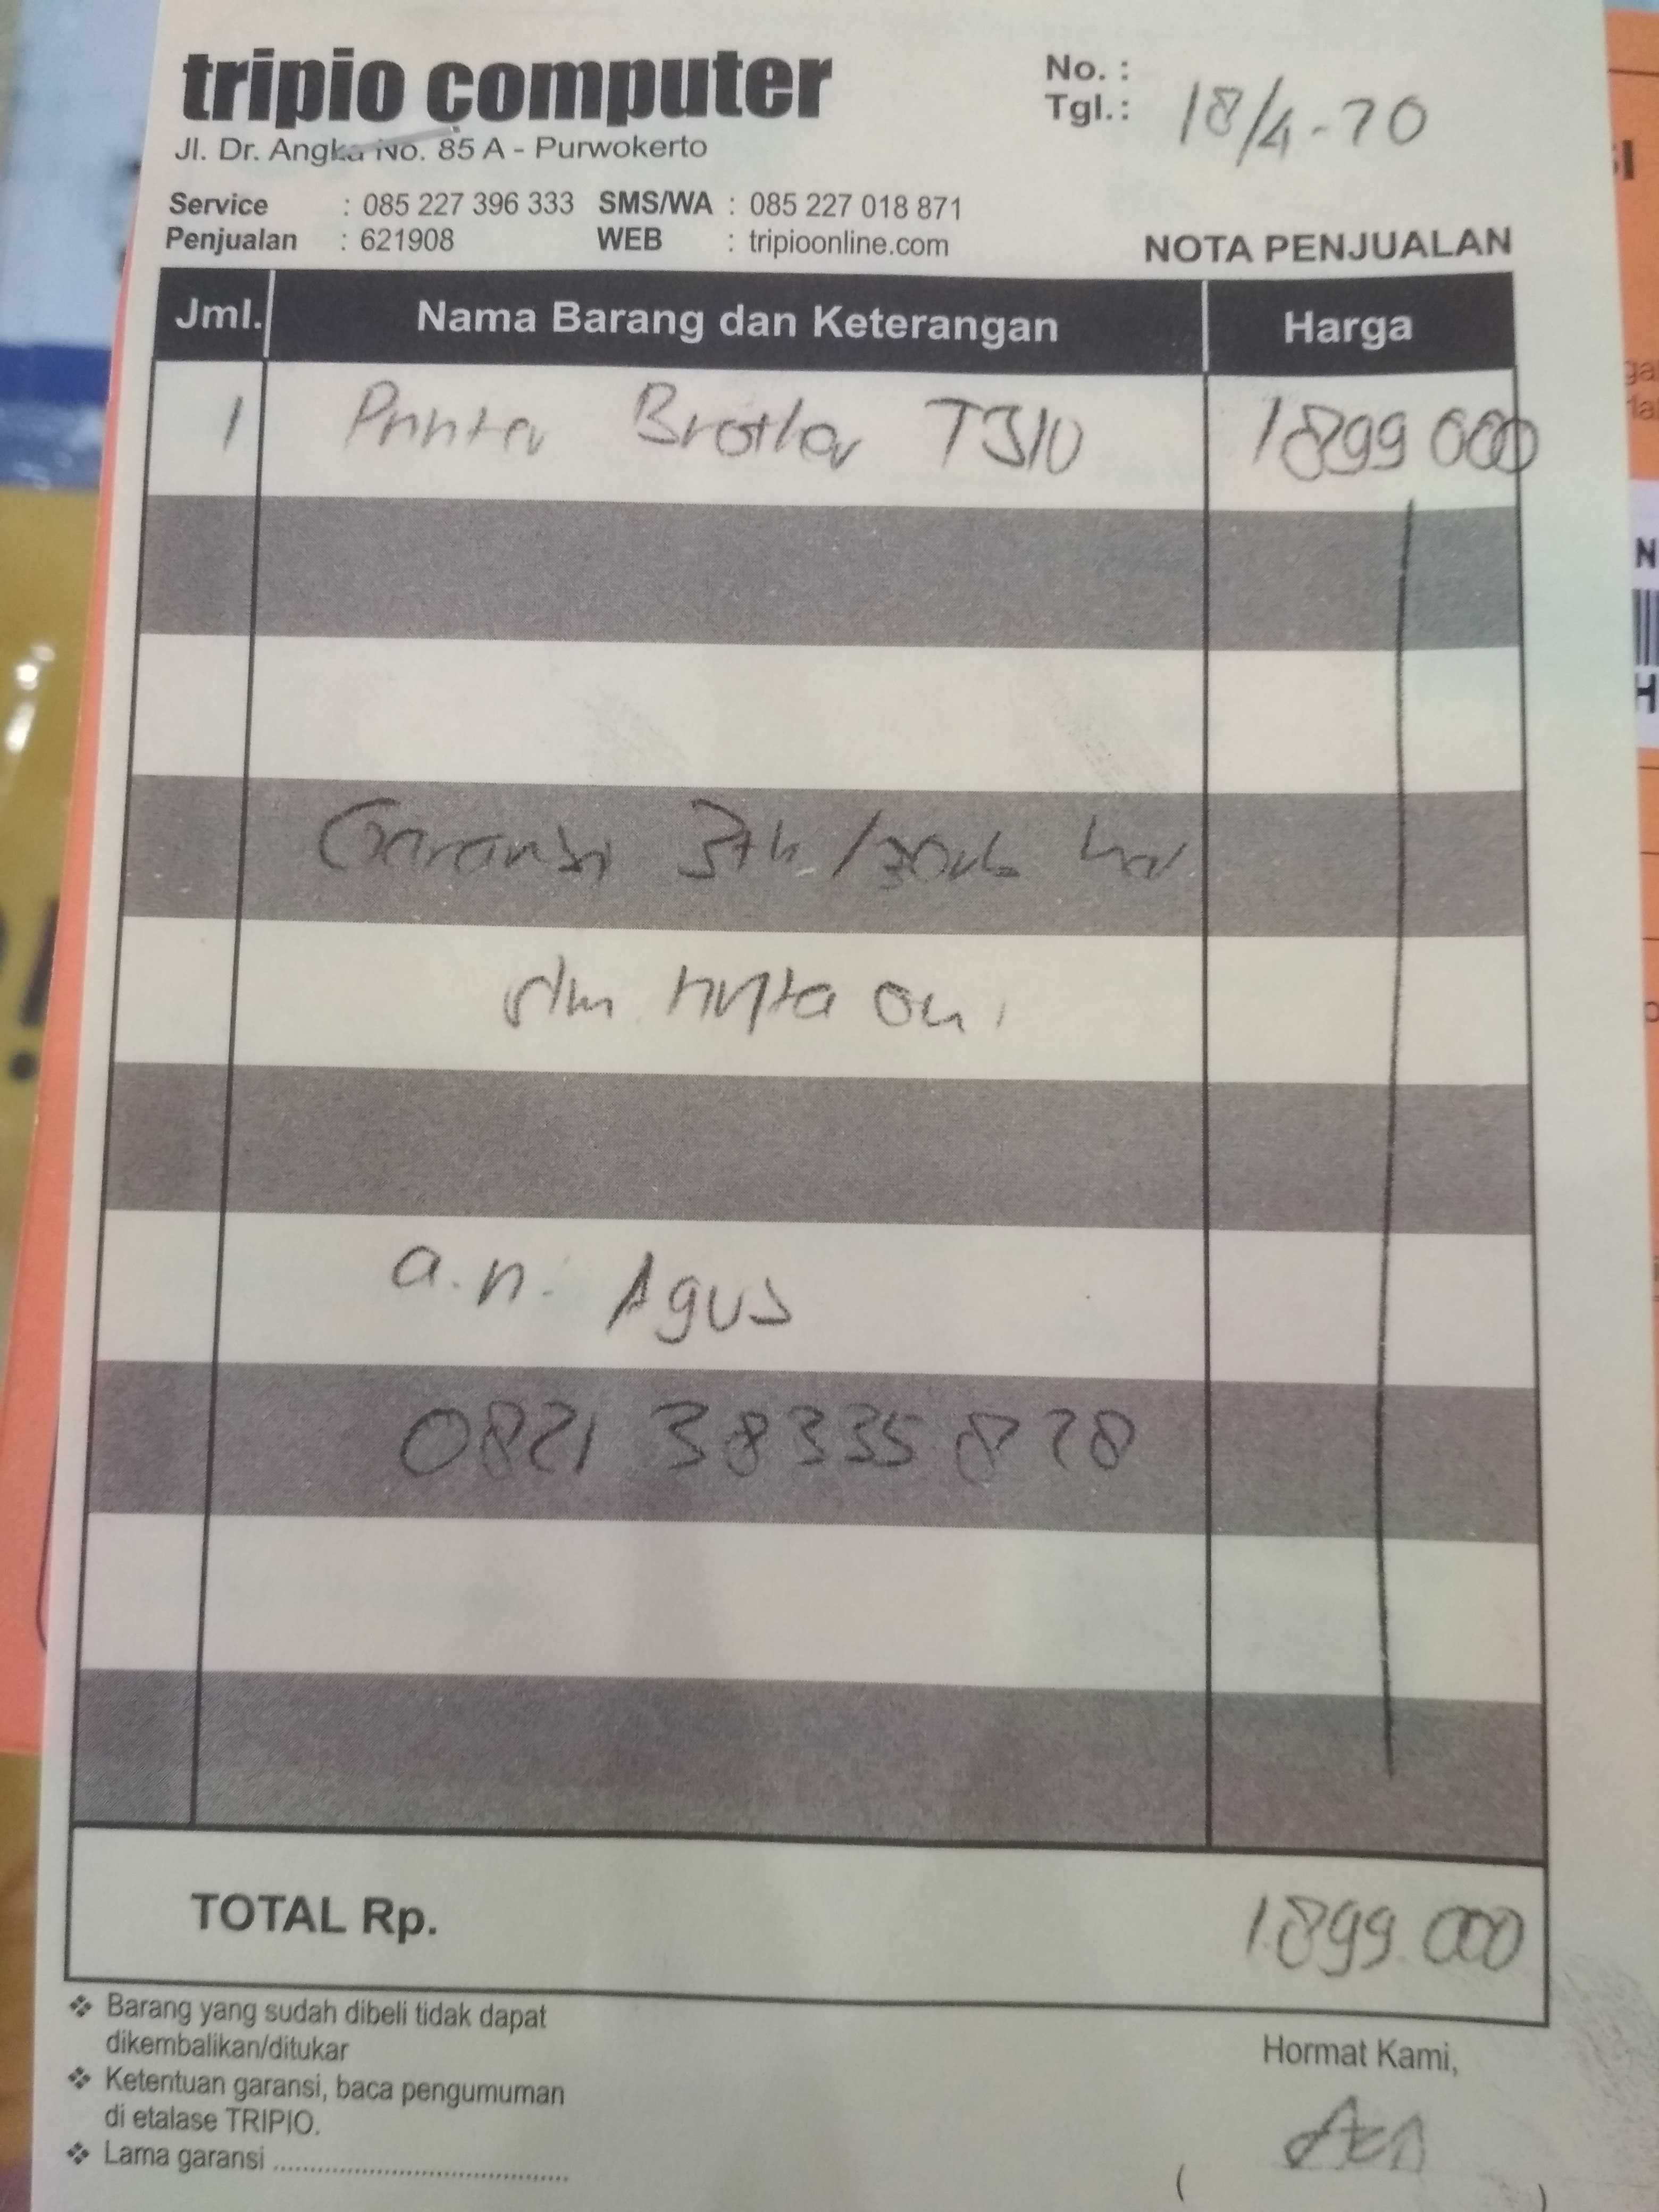 tripio computer
Jl. Dr. Angka No. 85 A - Purwokerto
No. :
Tgl.: 18/4-20
Service : 085 227 396 333 SMS/WA : 085 227 018 871
Penjualan : 621908 WEB : tripioonline.com
NOTA PENJUALAN
Jml. Nama Barang dan Keterangan Harga
1 Printer Brother T310 1899 000
Garansi 3th /30rb hal
dlm tinta ori
a.n. Agus
0821 38335 828
TOTAL Rp. 1.899.000
Barang yang sudah dibeli tidak dapat
dikembalikan/ditukar
Ketentuan garansi, baca pengumuman
di etalase TRIPIO.
Lama garansi ........................................
Hormat Kami,
( )